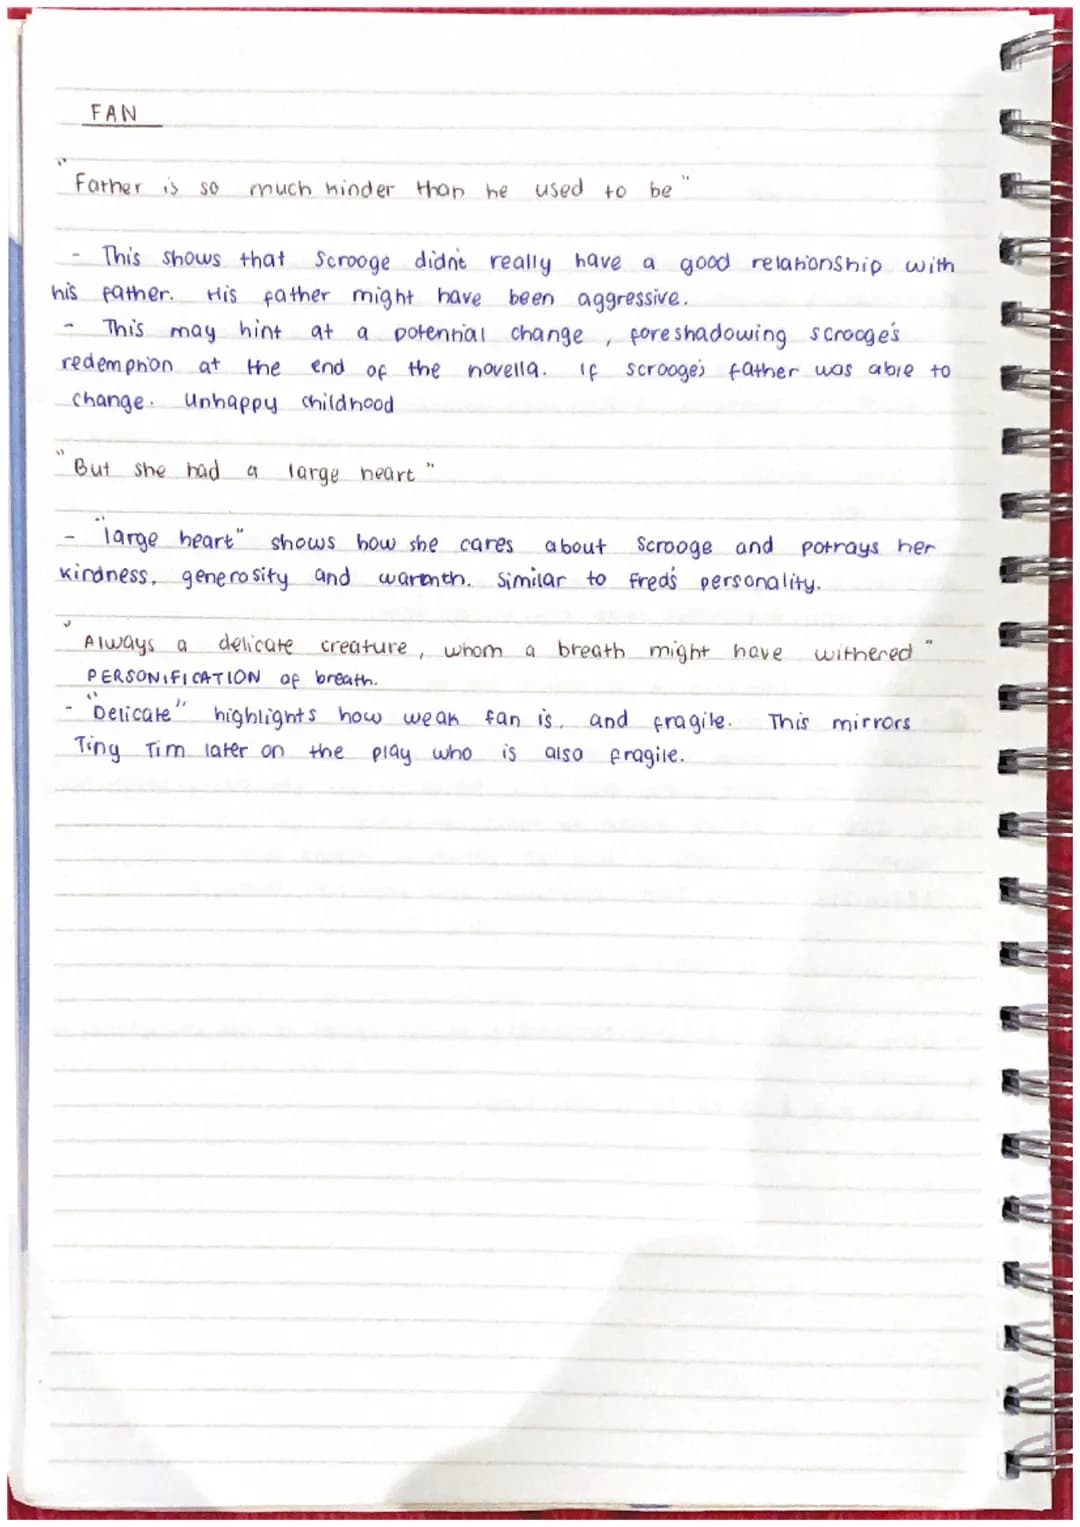 FAN
"Father is so much kinder than he used to be"
- This shows that Scrooge didn't really have a good relationship with
his father. His father might have been aggressive.
- This may hint at a potential change, foreshadowing scrooge's
redemption at the end of the novella. If scrooge's father was able to
change. Unhappy childhood
"But she had a large heart"
- "large heart" shows how she cares about Scrooge and potrays her
kindness, generosity and warmth. Similar to Fred's personality.
"Always a delicate creature, whom a breath might have withered"
PERSONIFICATION of breath.
- "Delicate" highlights how weak fan is. and fragile. This mirrors
Ting Tim later on the play who is also fragile.